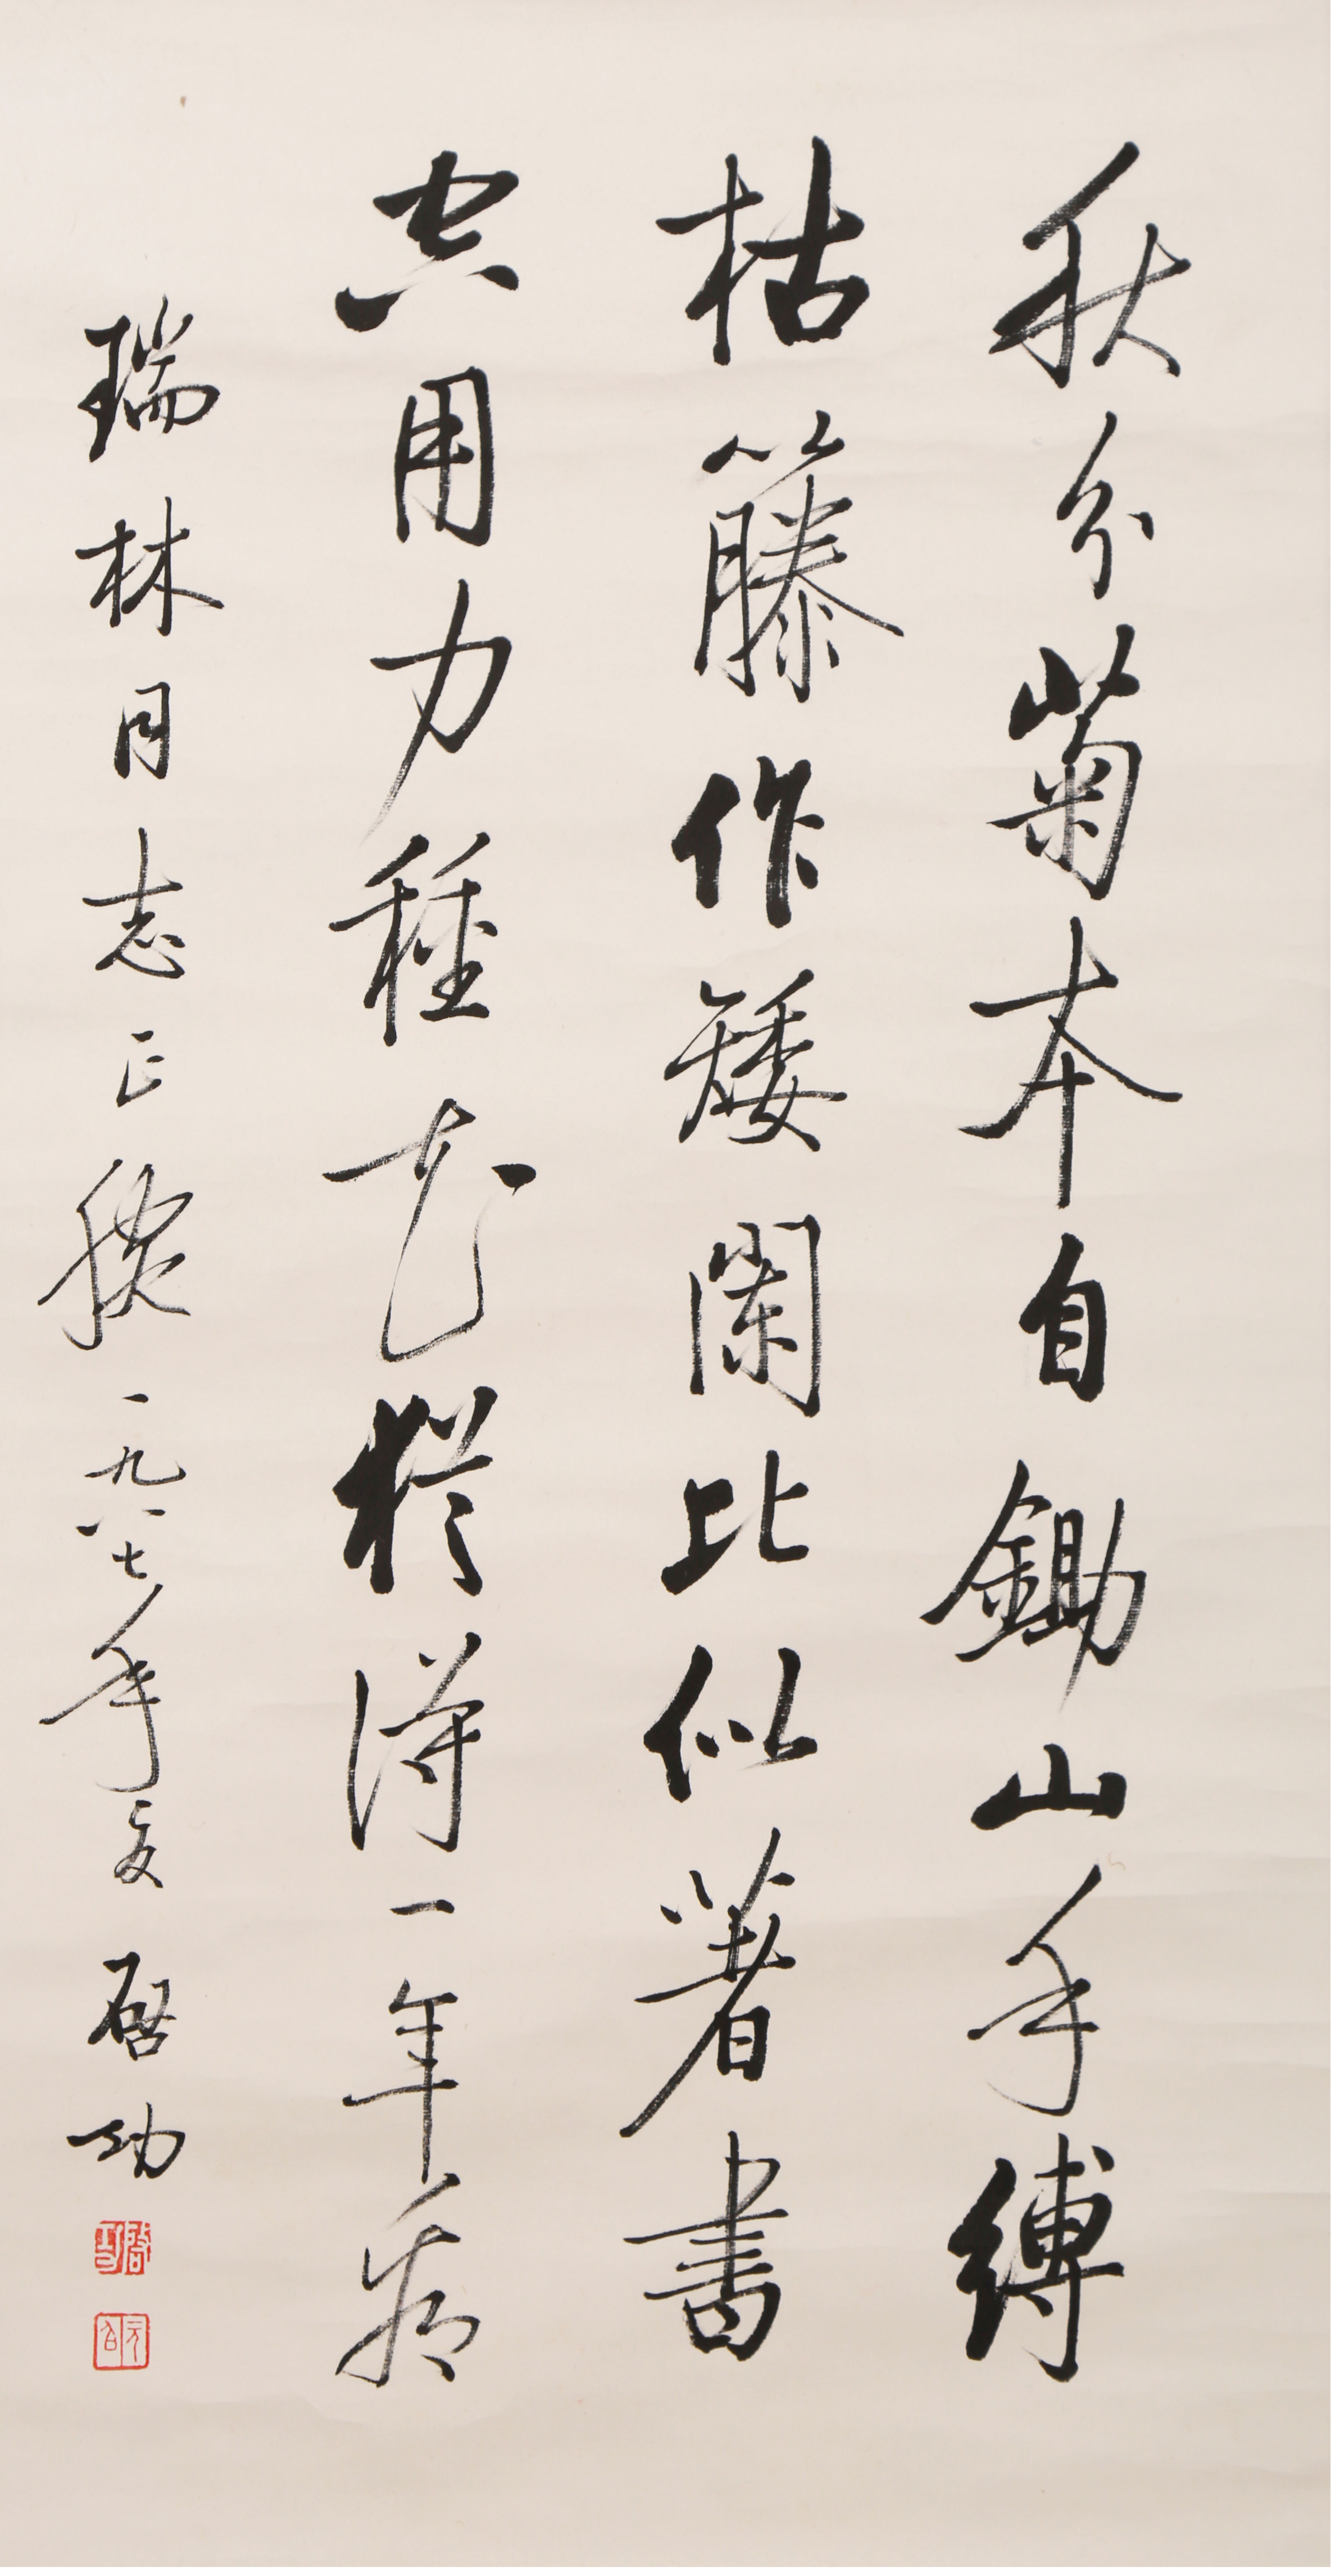 秋分菊本自鋤山手縛
枯籐作矮闌比似著書
空用力種花猶得一年看
瑞林同志正腕一九八七年夏啓功